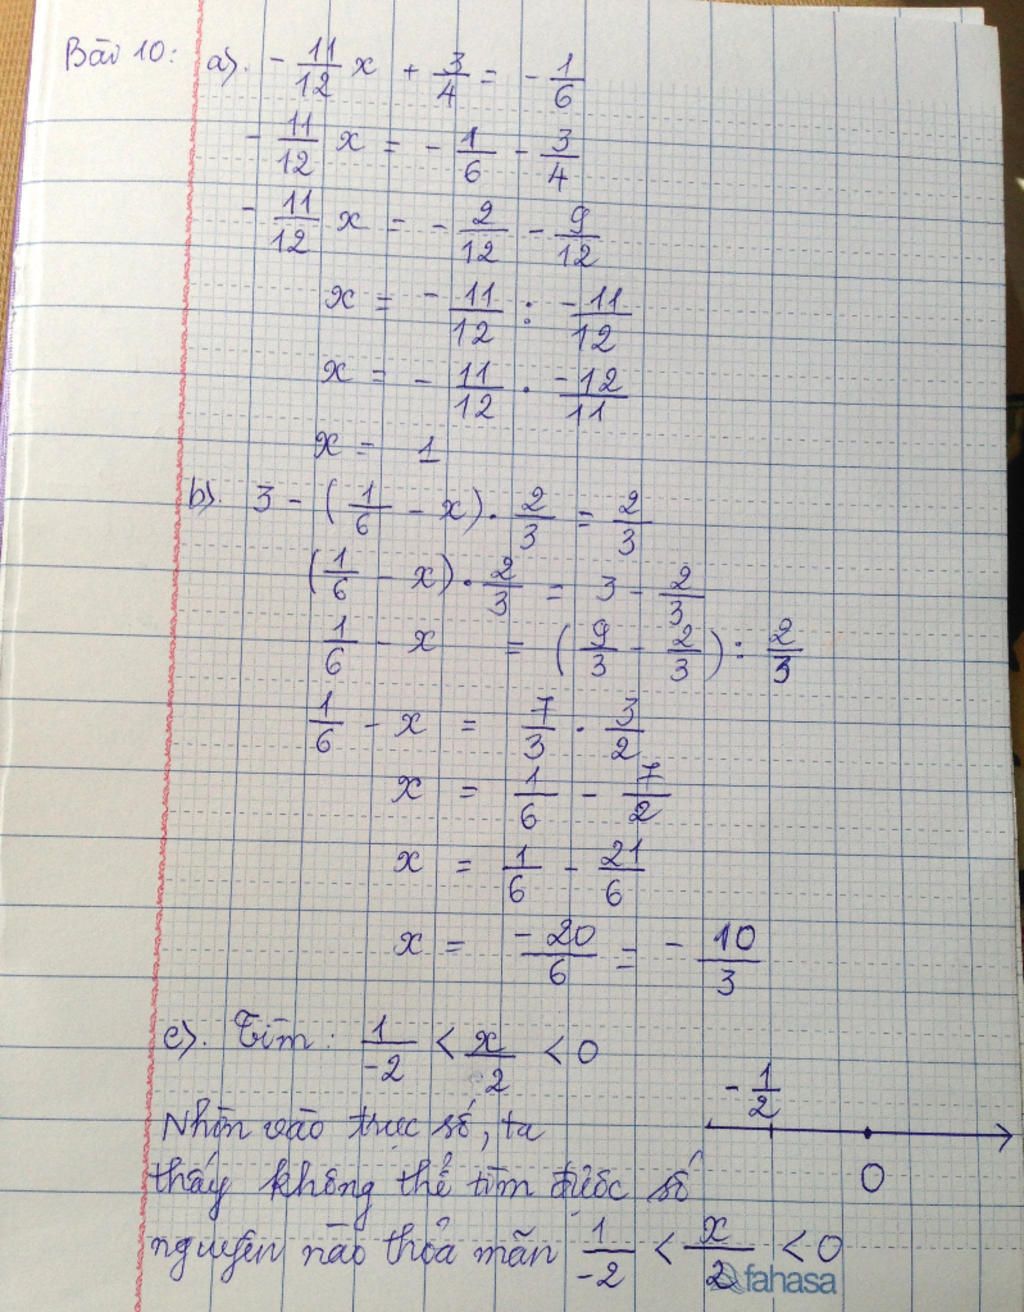 Bài 10: a). - 11/12 x + 3/4 = - 1/6
- 11/12 x = - 1/6 - 3/4
- 11/12 x = - 2/12 - 9/12
x = - 11/12 : -11/12
x = - 11/12 . -12/11
x = 1
b). 3 - (1/6 - x) . 2/3 = 2/3
(1/6 - x) . 2/3 = 3 - 2/3
1/6 - x = (9/3 - 2/3) : 2/3
1/6 - x = 7/3 . 3/2
x = 1/6 - 7/2
x = 1/6 - 21/6
x = -20/6 = - 10/3
c). Tìm: 1/-2 < x/2 < 0
- 1/2
0
Nhìn vào trục số, ta
thấy không thể tìm được số
nguyên nào thỏa mãn 1/-2 < x/2 < 0
fahasa